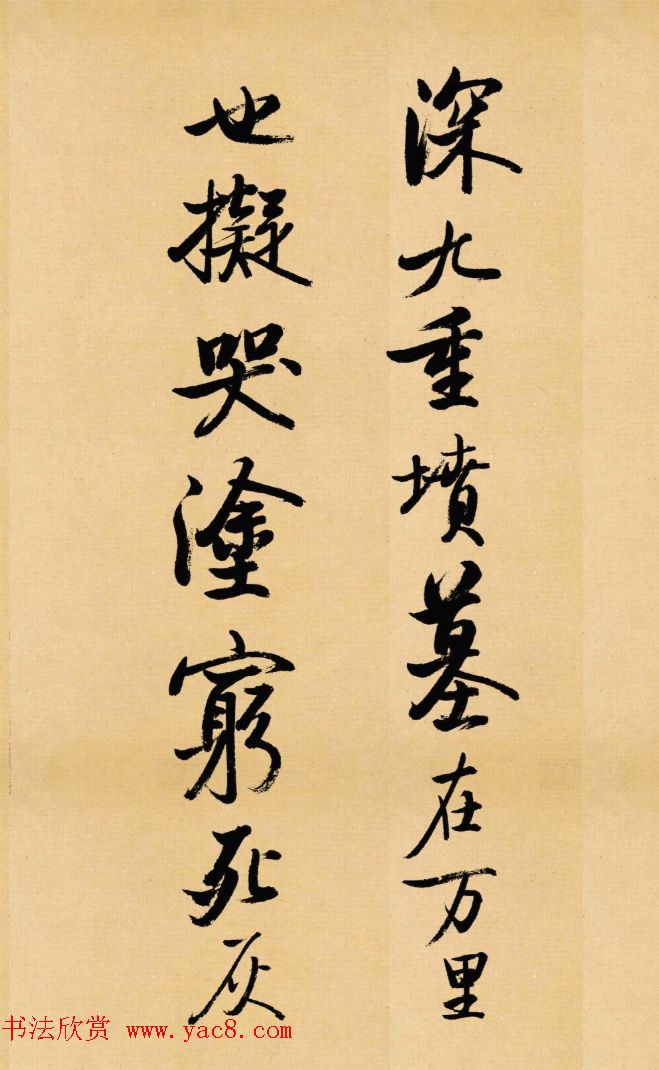 深九重墳墓在万里
也擬哭塗窮死灰
书法欣赏 www.yac8.com